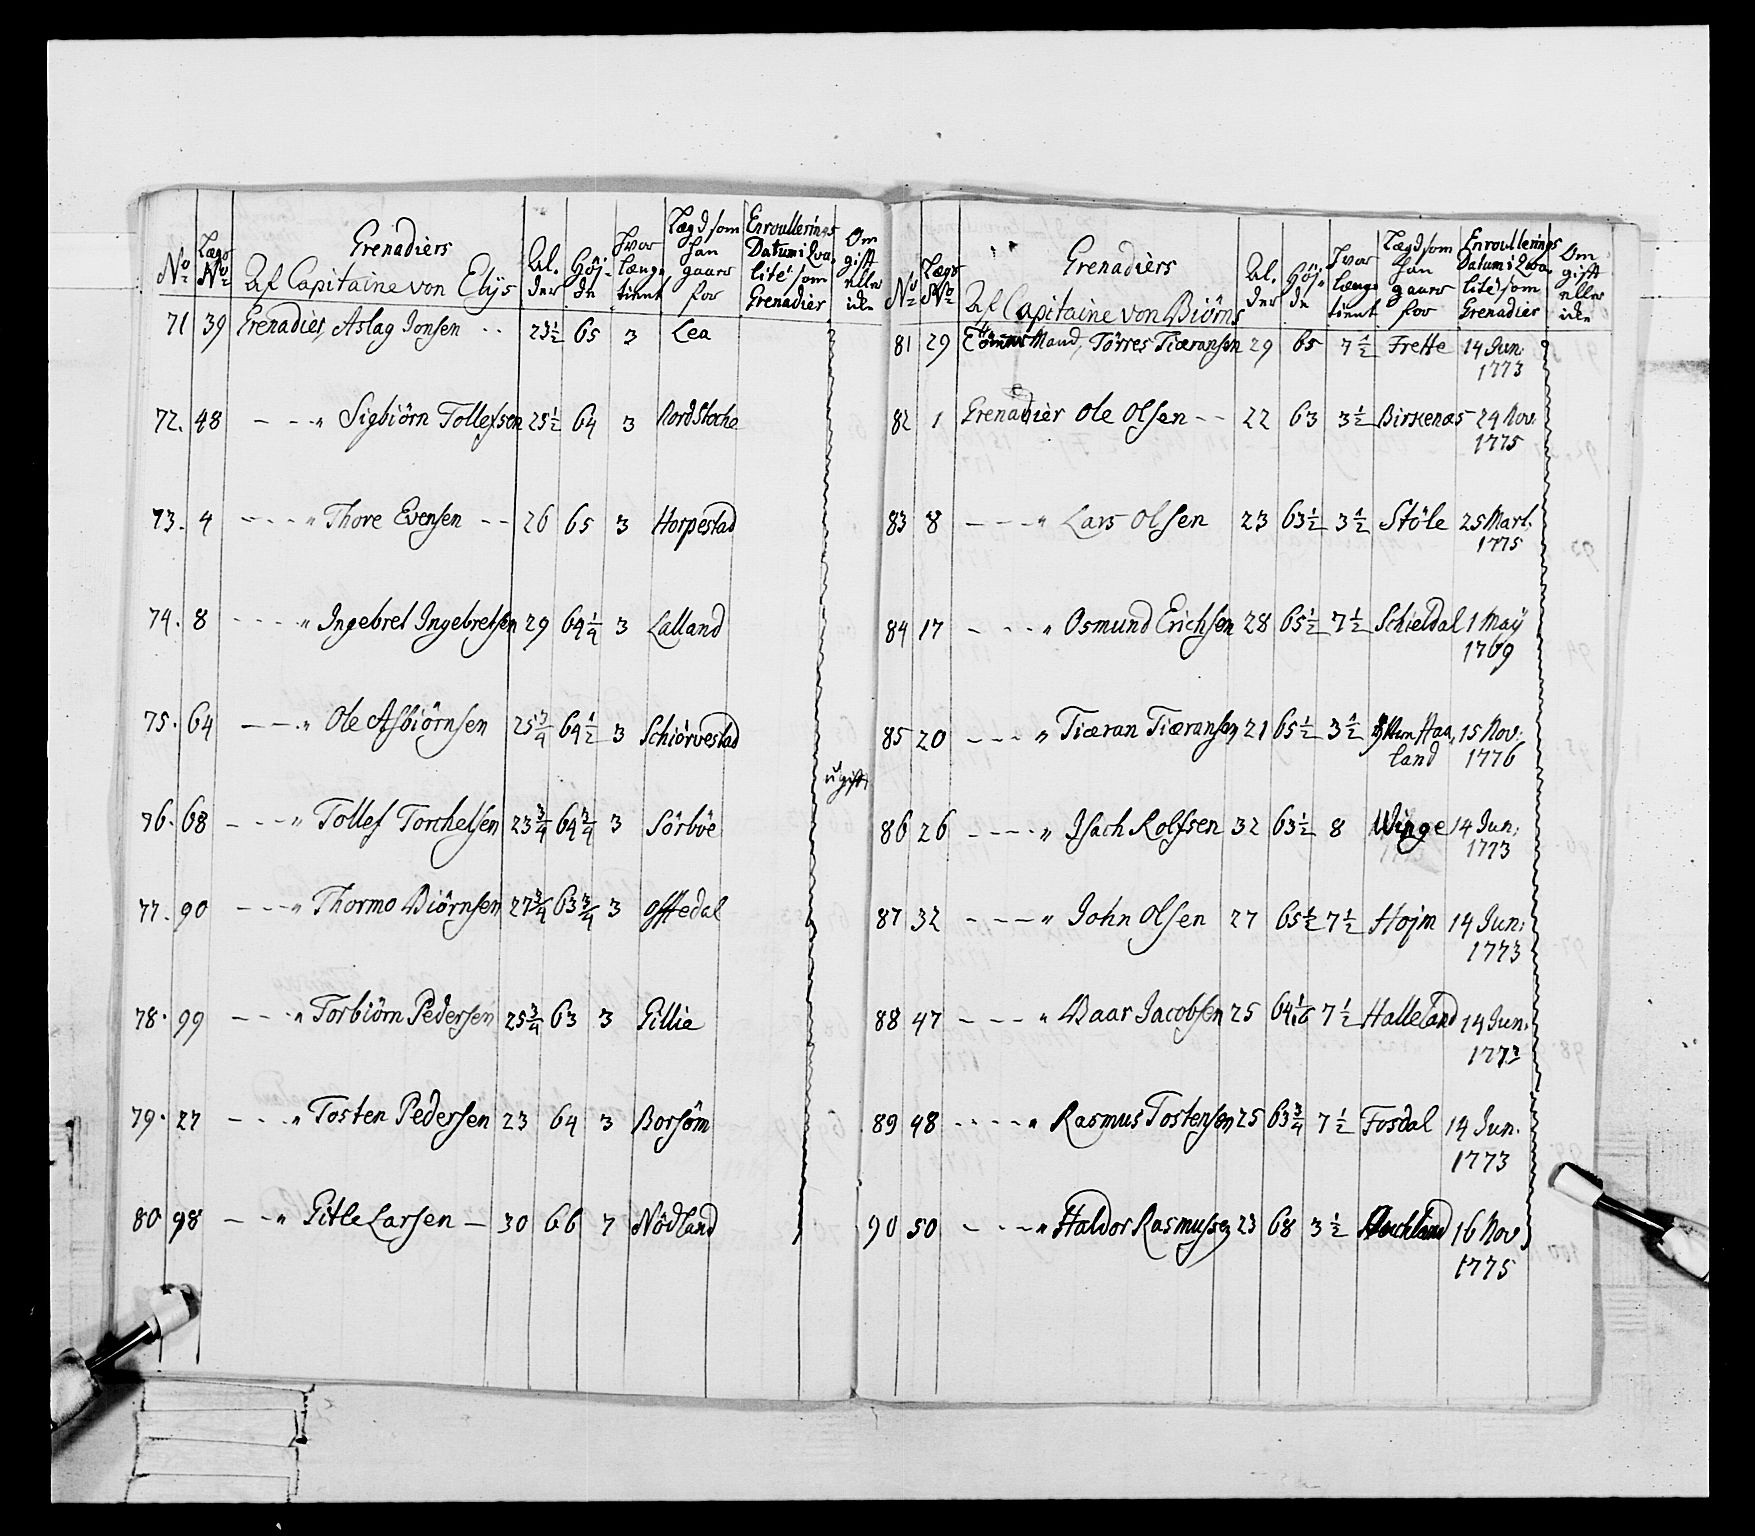 No Lægs No Grenadiers Af Capitaine von Elÿs Al. der Höj- de Hvor længe tient Lægd som han gaaer for Enroullerings Datum i Qva, lité som Grenadier Om gift eller icke
71 39 Grenadier, Aslag Jonsen - - 23½ 65 3 Lea
72. 48 - - - " Sigbiörn Tollefsen 25½ 64 3 Nordstoche
73. 4 - - - - " Thore Evensen - - 26 65 3 Horpestad
74. 8 - - - - " Ingebret Ingebretsen 29 64¼ 3 Lalland
75. 64 - - - " Ole Asbiörnsen 25¾ 64½ 3 Schiörvestad
ugift
76. 68 - - - " Tollef Torchelsen 23¾ 64¾ 3 Sörböe
77. 90 - - - " Thormo Biörnsen 27¾ 63¾ 3 Offtedal
78. 99 - - - " Torbiörn Pedersen 25¾ 63 3 Gillie
79. 27 - - - " Tosten Pedersen 23 64 3 Borsöm
80 98 - - - " Gitle Larsen - 30 66 7 Nödland
No Lægs No Grenadiers Af Capitaine von Biörns Al. der Höj- de Hvor længe tient Lægd som han gaaer for Enroullerings Datum i Qva, lité som Grenadier Om gift eller icke
81 29 Tömmer Mand, Törres Tiæransen 29 65 7½ Frette 14 Jun:
1773
82 1 Grenadier Ole Olsen - - 22 63 3½ Birkenæs 24 Nov:
1775
83 8 - - - - " Lars Olsen 23 63½ 3½ Stöle 25 Mart.
1775
84 17 - - - - " Osmund Erichsen 28 65½ 7½ Schieldal 1 Maÿ
1769
85 20 - - - - " Tiæran Tiæransen 21 65½ 3½ Haa, 15 Nov:
land 1776
86 26 - - - - " Isach Rolfsen 32 63½ 8 Winge 14 Jun:
1773
87 32 - - - - " John Olsen 27 65½ 7½ Hojm 14 Jun:
1773
88 47 - - - - " Waar Jacobsen 25 64 1/16 7½ Halleland 14 Jun.
1773
89 48 - - - - " Rasmus Tostensen 25 63¾ 7½ Fosdal 14 Jun.
1773
90 50 - - - - " Haldor Rasmussen 23 68 3½ 16 Nov
1775